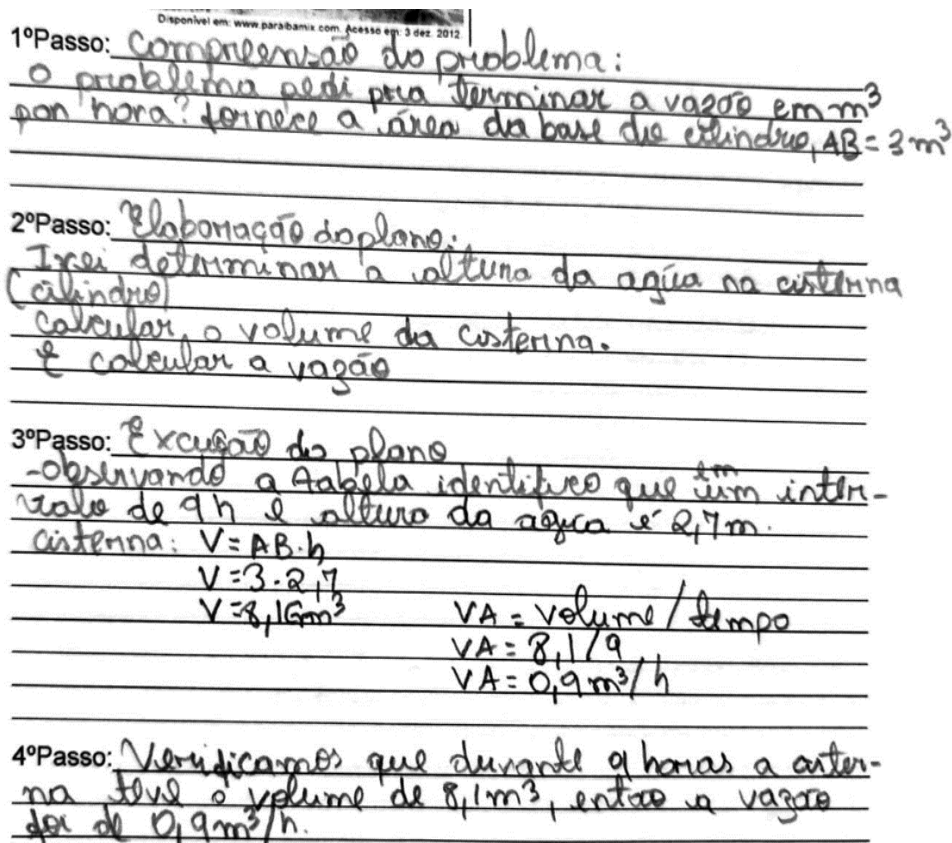 Disponível em: www.paraibamix.com. Acesso em: 3 dez. 2012
1ºPasso: Compreensão do problema:
O problema pedi pra terminar a vazão em m³
por hora? fornece a área da base do cilindro, AB = 3 m³
2ºPasso: Elaboração do plano:
Irei determinar a altura da agúa na cisterna
(cilindro)
calcular o volume da cisterna.
E calcular a vazão
3ºPasso: Excução do plano
-observando a tabela identifico que em um inter-
valo de 9h e altura da agua é 2,7m.
cisterna: V = AB.h
V = 3.2,7
V = 8,1 m³
VA = Volume / tempo
VA = 8,1 / 9
VA = 0,9 m³/h
4ºPasso: Verificamos que durante 9 horas a cister-
na teve o volume de 8,1m³, então a vazão
foi de 0,9m³/h.